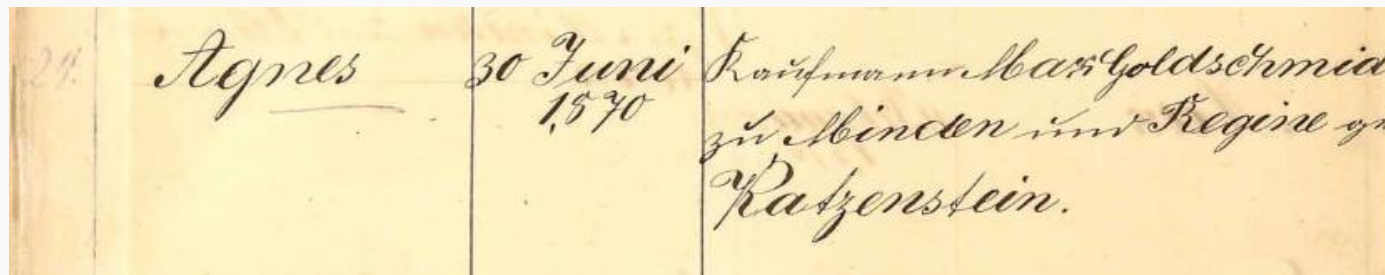 24. Agnes 30 Juni Kaufmann Max Goldschmid
1870 zu Minden und Regine ge
Katzenstein.